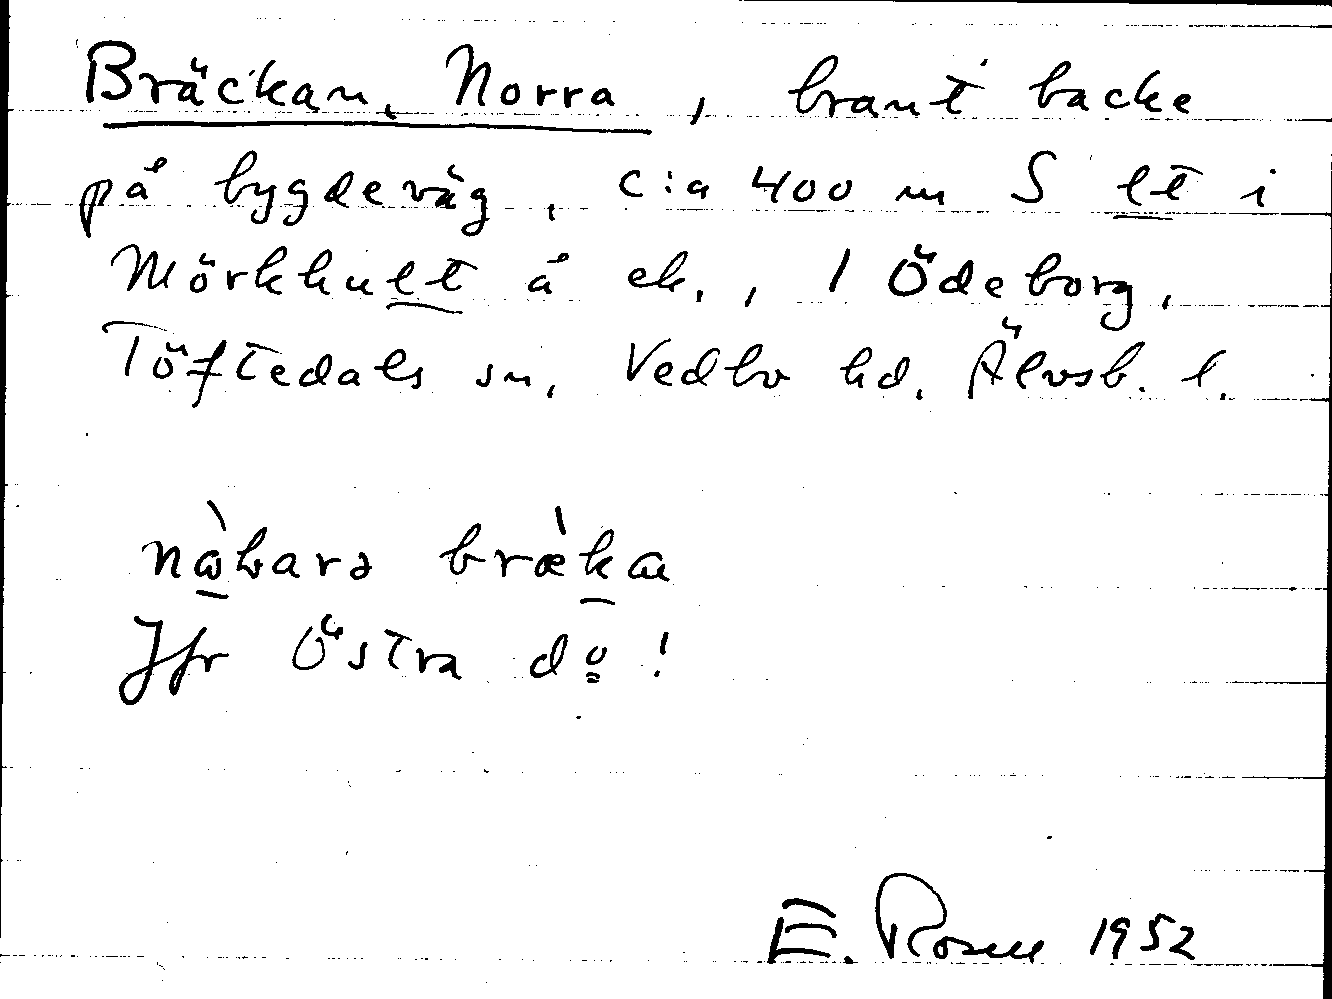 Bräckan, Norra, brant backe
på bygdeväg, c:a 400 m S lt i
Mörkhult å ek., 1 Ödeborg,
Töftedals sn, Vedbo hd. Älvsb. l.
nὼbarə bræ̀ka
Jfr Östra dº!
E. Rosell 1952